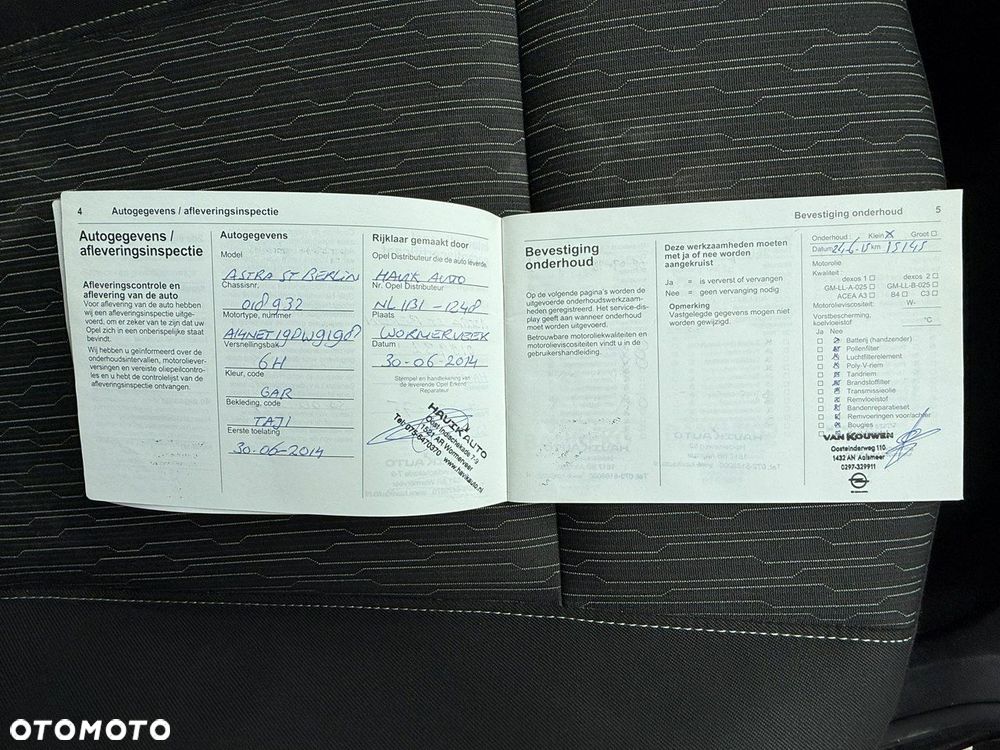 4 Autogegevens / afleveringsinspectie
Autogegevens /
afleveringsinspectie
Afleveringscontrole en
aflevering van de auto
Voor aflevering van de auto hebben
wij een afleveringsinspectie uitge-
voerd, om er zeker van te zijn dat uw
Opel zich in een onberispelijke staat
bevindt.
Wij hebben u geïnformeerd over de
onderhoudsintervallen, motoroliever-
versingen en vereiste oliepeilcontro-
les en u hebt de controlelijst van de
afleveringsinspectie ontvangen.
Autogegevens
Model
ASTRA ST BERLIN
Chassisnr.
018932
Motortype, nummer
Versnellingsbak
6H
Kleur, code
GAR
Bekleding, code
TAJI
Eerste toelating
30-06-2014
Rijklaar gemaakt door
Opel Distributeur die de auto leverde.
HAVIK AUTO
Nr. Opel Distributeur
Plaats
WORMERVEER
Datum
30-06-2014
Stempel en handtekening van
de leverende Opel Erkend
Reparateur
HAVIK AUTO
Oost Indischekade 7-9
1521 AR Wormerveer
Tel: 075-6470370 www.havikauto.nl
Bevestiging onderhoud 5
Bevestiging
onderhoud
Op de volgende pagina's worden de
uitgevoerde onderhoudswerkzaam-
heden geregistreerd. Het service-dis-
play geeft aan wanneer onderhoud
moet worden uitgevoerd.
Betrouwbare motoroliekwaliteiten en
motorolieviscositeiten vindt u in de
gebruikershandleiding.
Deze werkzaamheden moeten
met ja of nee worden
aangekruist
Ja = is ververst of vervangen
Nee = geen vervanging nodig
Opmerking
Vastgelegde gegevens mogen niet
worden gewijzigd.
Onderhoud: Klein X Groot
Datum 24.6.15 km 15145
Motorolie
Kwaliteit
dexos 1 dexos 2
GM-LL-A-025 GM-LL-B-025
ACEA A3 B4 C3
Motorolieviscositeit: W-
Vorstbescherming,
koelvloeistof °C
Ja Nee
Batterij (handzender)
Pollenfilter
Luchtfilterelement
Poly-V-riem
Tandriem
Brandstoffilter
Transmissieolie
Remvloeistof
Bandenreparatieset
Remvoeringen voor/achter
Bougies
VAN KOUWEN
Oosteinderweg 110
1432 AN Aalsmeer
0297-329911
OTOMOTO